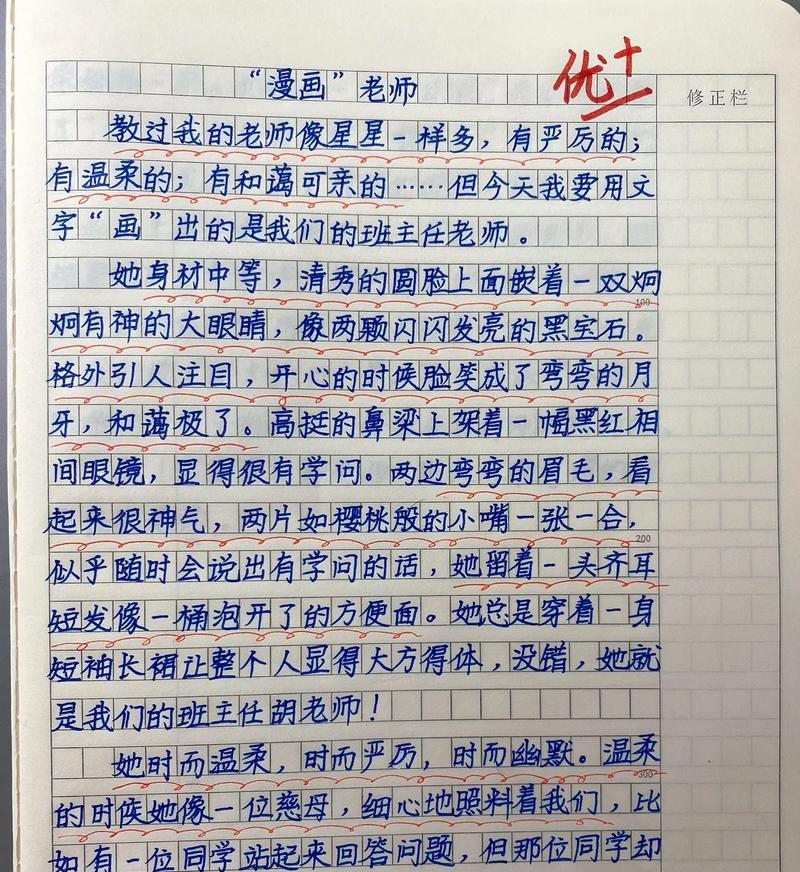 “漫画”老师
优+
修正栏
教过我的老师像星星一样多，有严厉的；
有温柔的；有和蔼可亲的……但今天我要用文
字“画”出的是我们的班主任老师。
她身材中等，清秀的圆脸上面嵌着一双炯
100
炯有神的大眼睛，像两颗闪闪发亮的黑宝石。
格外引人注目，开心的时候脸笑成了弯弯的月
牙，和蔼极了。高挺的鼻梁上架着一幅黑红相
间眼镜，显得很有学问。两边弯弯的眉毛，看
起来很神气，两片如樱桃般的小嘴一张一合，
200
似乎随时会说出有学问的话，她留着一头齐耳
短发像一桶泡开了的方便面。她总是穿着一身
短袖长裙让整个人显得大方得体，没错，她就
是我们的班主任胡老师！
她时而温柔，时而严厉，时而幽默。温柔
300
的时候她像一位慈母，细心地照料着我们，比
如有一位同学站起来回答问题，但那位同学却